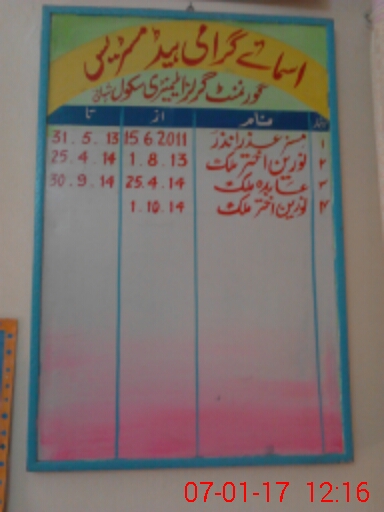 اسمائے گرامی ہیڈ مسٹریس
گورنمنٹ گرلز ایلیمنٹری سکول
نام از تا
۱ مسز عذرا نذر 15 6 2011 31.5.13
۲ نورین اختر ملک 1.8.13 25.4.14
۳ عابدہ ملک 25.4.14 30.9.14
۴ نورین اختر ملک 1.10.14
07-01-17 12:16